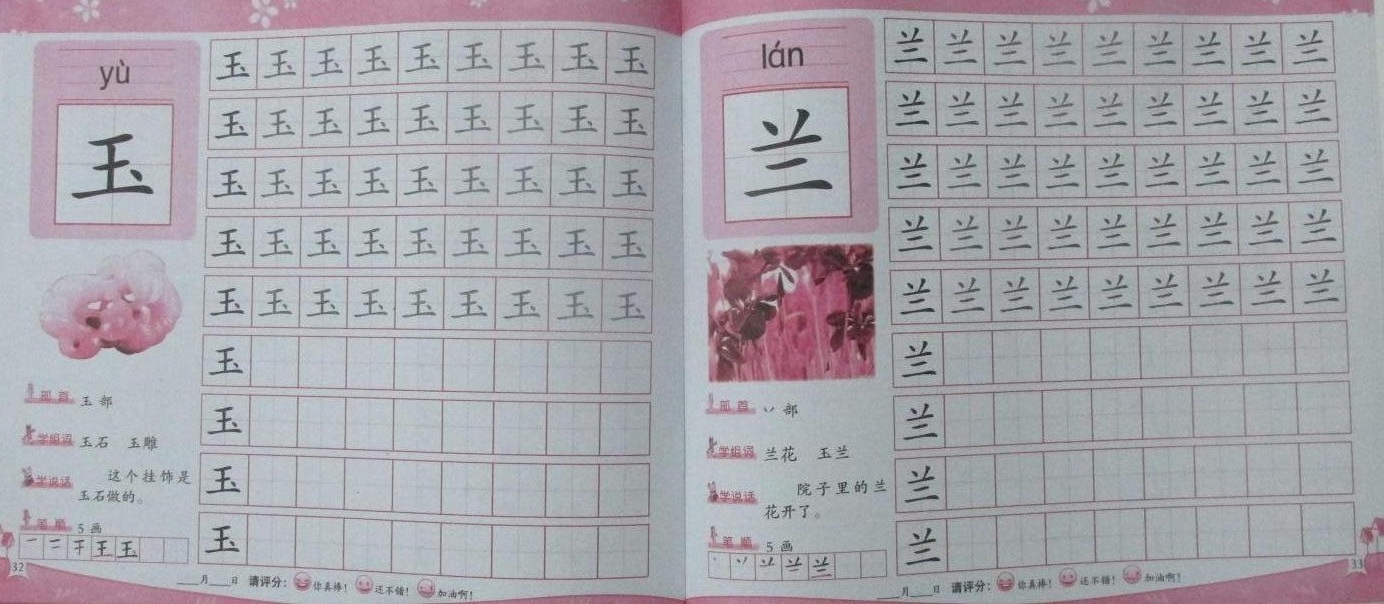 yù
玉
玉 玉 玉 玉 玉 玉 玉 玉 玉
玉 玉 玉 玉 玉 玉 玉 玉 玉
玉 玉 玉 玉 玉 玉 玉 玉 玉
玉 玉 玉 玉 玉 玉 玉 玉 玉
玉 玉 玉 玉 玉 玉 玉 玉 玉
玉
玉
玉
玉
部首 玉部
学组词 玉石 玉雕
学说话 这个挂饰是
玉石做的。
笔顺 5画
一 二 干 王 玉
32
___月___日 请评分: 你真棒! 还不错! 加油啊!
lán
兰
兰 兰 兰 兰 兰 兰 兰 兰 兰
兰 兰 兰 兰 兰 兰 兰 兰 兰
兰 兰 兰 兰 兰 兰 兰 兰 兰
兰 兰 兰 兰 兰 兰 兰 兰 兰
兰 兰 兰 兰 兰 兰 兰 兰 兰
兰
兰
兰
兰
部首 丷部
学组词 兰花 玉兰
学说话 院子里的兰
花开了。
笔顺 5画
丶 丷 䒑 兰 兰
33
___月___日 请评分: 你真棒! 还不错! 加油啊!